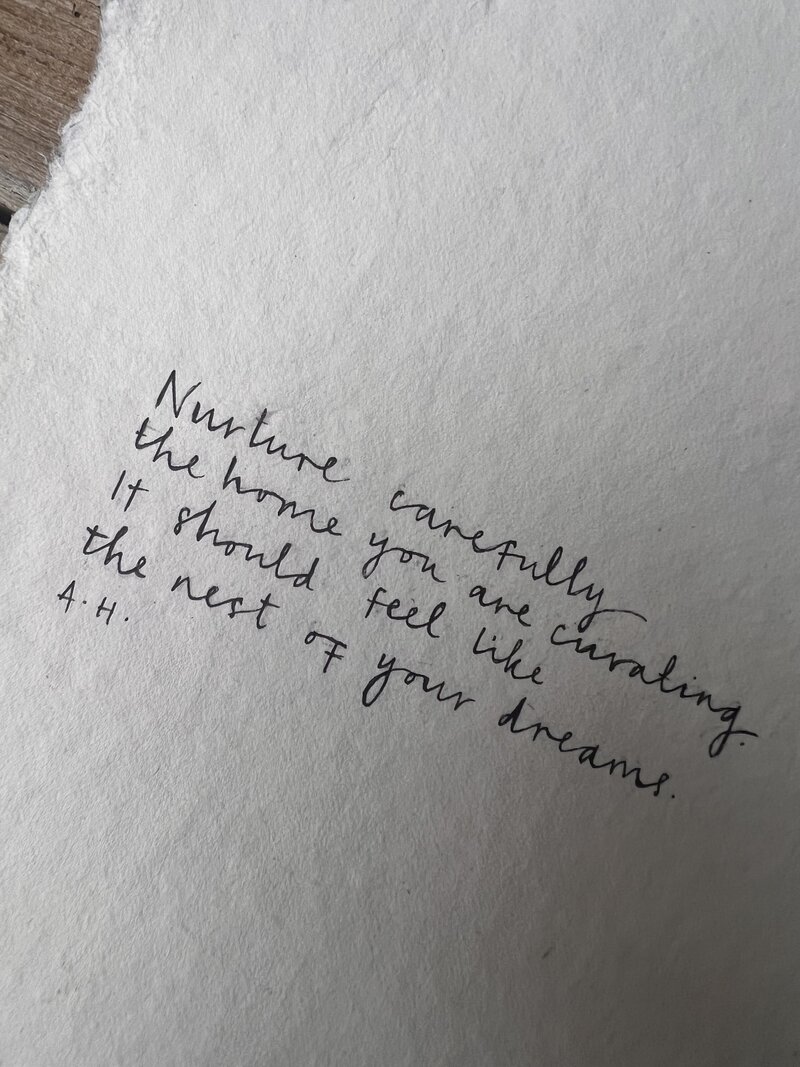 Nurture carefully
the home you are curating.
It should feel like
the nest of your dreams.
A.H.